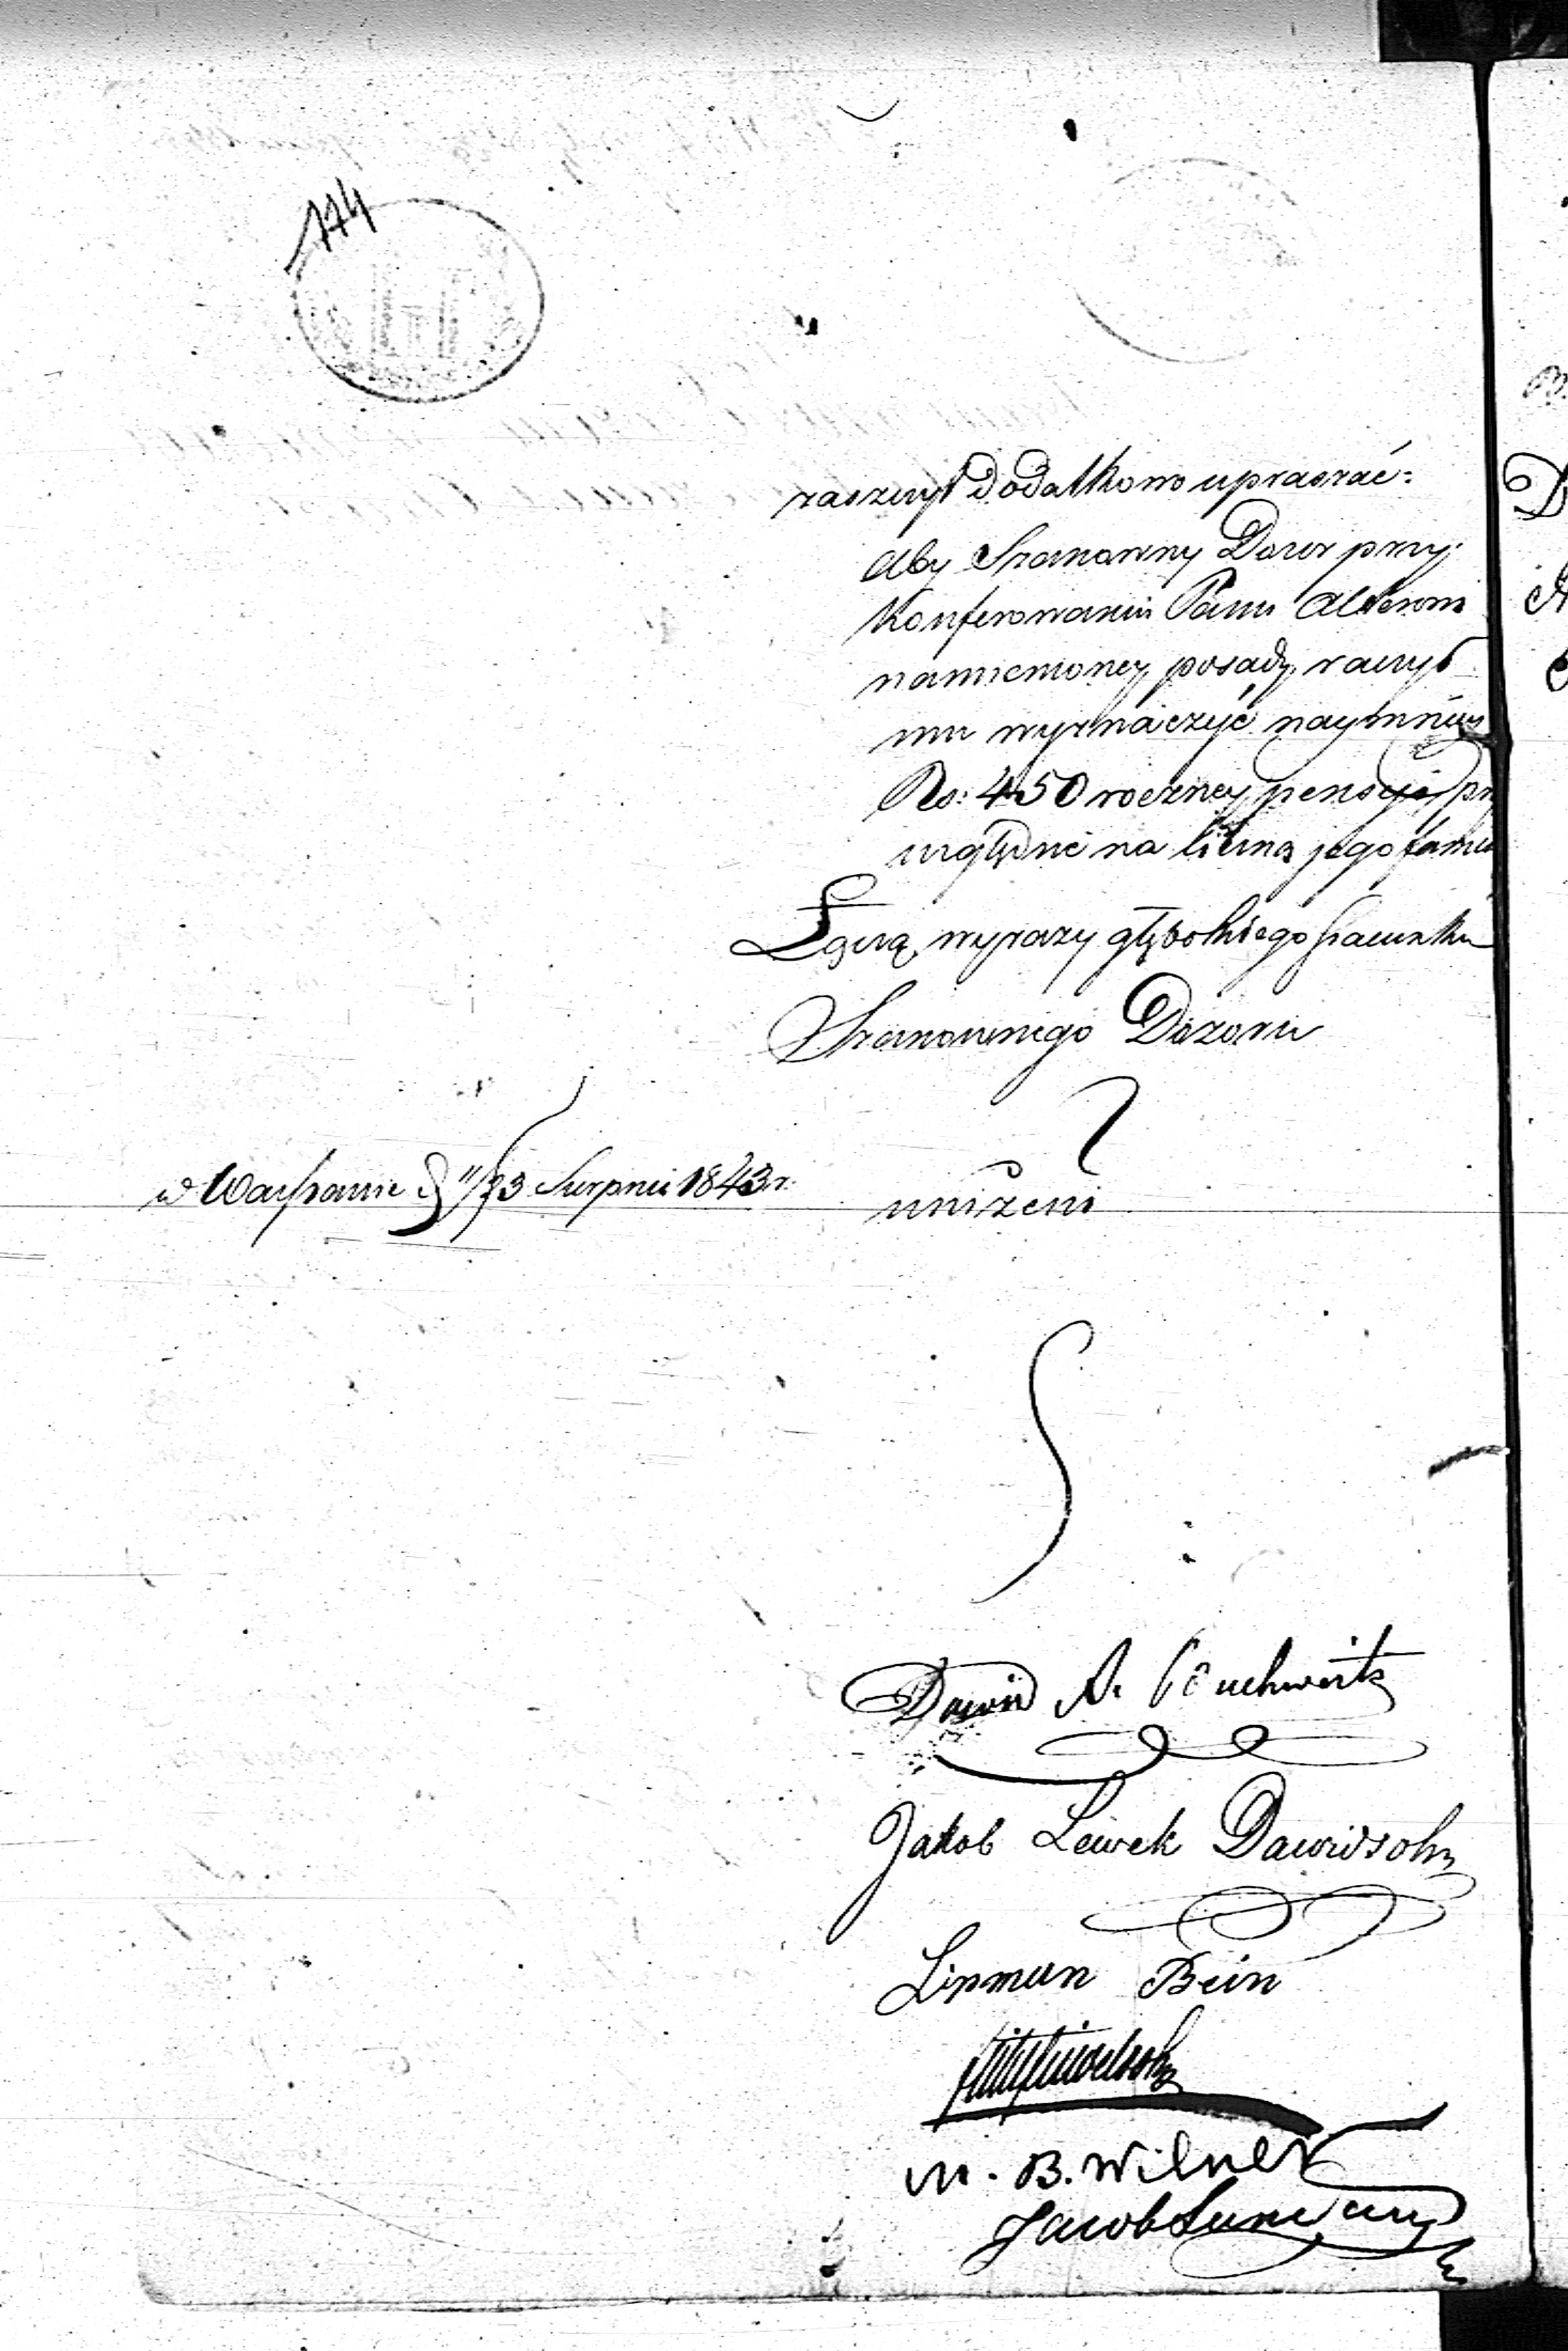 174
zaszczyt dodatkowo upraszać:
aby Szanowny Dozór przy
konferowaniu Panu
namienioney posady, raczył
mu wyznaczyć naymniey
Rs: 450 roczney pensyi, prz
względnie na liczną jego famil
Łączą wyrazy głębokiego szacunku
Szanownego Dozoru
w Warszawie d 11/23 Sierpnia 1843 r.
uniżeni
Dawid A.
Jakob Lewek Dawidsohn
Lipman Bein
M. B. Wilner
Jacob